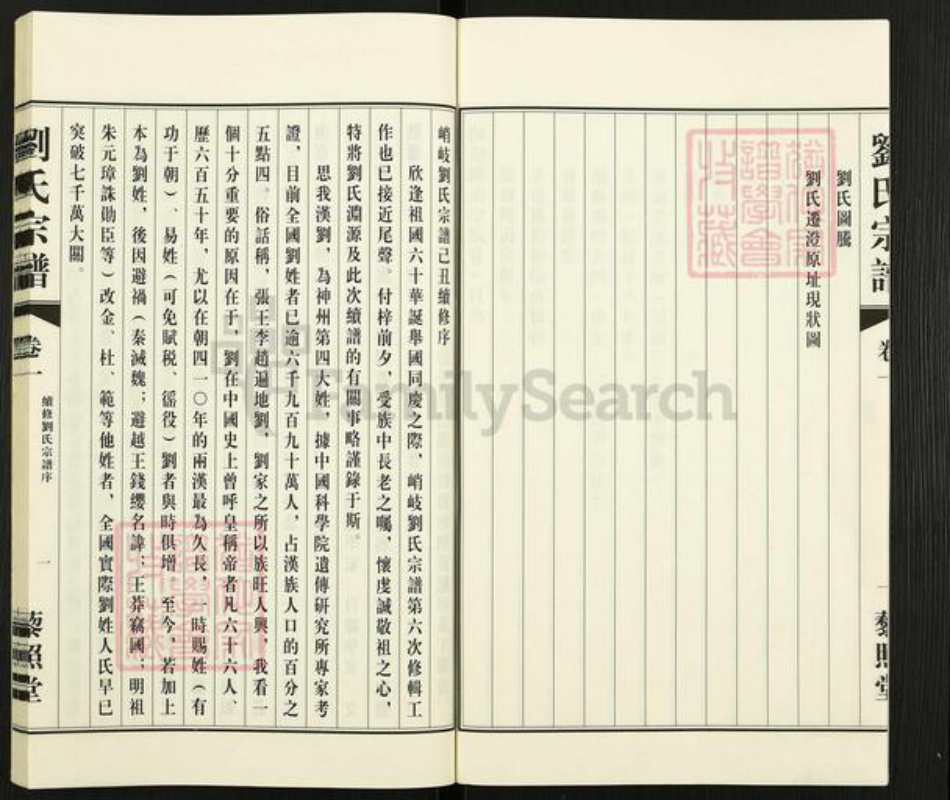 劉氏宗譜
卷一
藜照堂
劉氏圖騰
劉氏遷澄原址現狀圖
峭岐劉氏宗譜己丑續修序
欣逢祖國六十華誕舉國同慶之際，峭岐劉氏宗譜第六次修輯工
作也已接近尾聲。付梓前夕，受族中長老之囑，懷虔誠敬祖之心，
特將劉氏淵源及此次續譜的有關事略謹錄于斯。
思我漢劉，為神州第四大姓，據中國科學院遺傳研究所專家考
證，目前全國劉姓者已逾六千九百九十萬人，占漢族人口的百分之
五點四。俗話稱，張王李趙遍地劉，劉家之所以族旺人興，我看一
個十分重要的原因在于，劉在中國史上曾呼皇稱帝者凡六十六人、
歷六百五十年，尤以在朝四一〇年的兩漢最為久長，一時賜姓（有
功于朝）、易姓（可免賦税、徭役）劉者與時俱增。至今，若加上
本為劉姓，後因避禍（秦滅魏；避越王錢缪名諱；王莽竊國；明祖
朱元璋誅勛臣等）改金、杜、範等他姓者，全國實際劉姓人氏早已
突破七千萬大關。
劉氏宗譜
卷一
續修劉氏宗譜序
一
藜照堂
FamilySearch